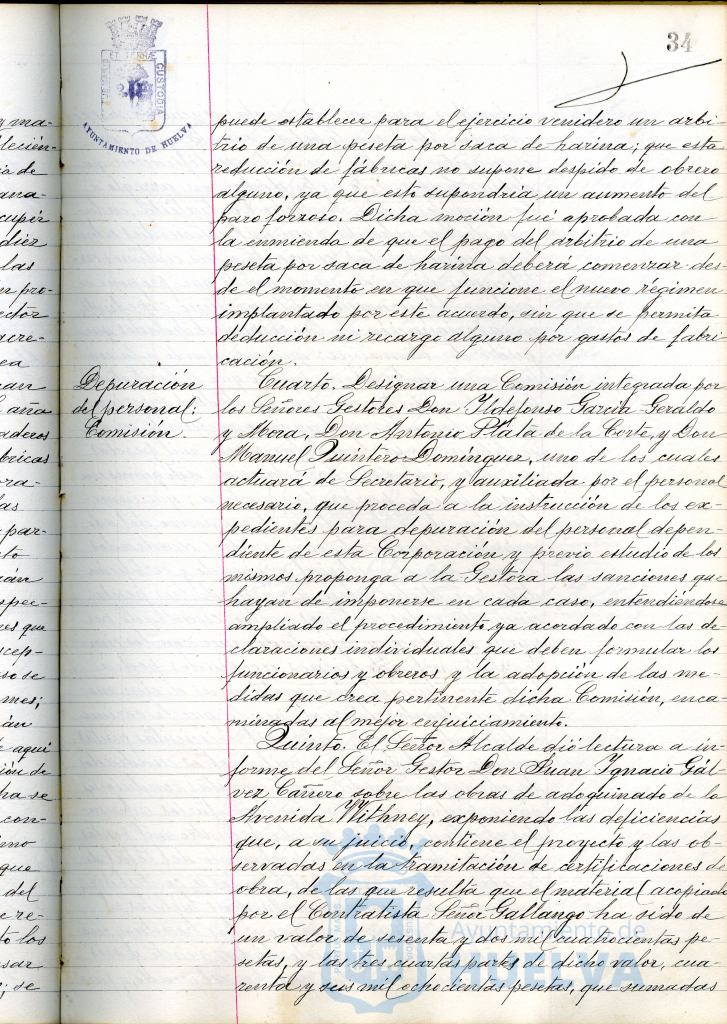 34
CUSTODIA
AYUNTAMIENTO DE HUELVA
puede establecer para el ejercicio venidero un arbi-
trio de una peseta por saca de harina; que esta
reducción de fábricas no supone despido de obrero
alguno, ya que esto supondría un aumento del
paro forzoso. Dicha moción fué aprobada con
la enmienda de que el pago del arbitrio de una
peseta por saca de harina deberá comenzar des-
de el momento en que funcione el nuevo régimen
implantado por este acuerdo, sin que se permita
deducción ni recargo alguno por gastos de fabri-
cación.
Depuración
del personal:
Comisión.
Cuarto. Designar una Comisión integrada por
los Señores Gestores Don Ildefonso García-Geraldo
y Mora, Don Antonio Plata de la Corte, y Don
Manuel Quintero Domínguez, uno de los cuales
actuará de Secretario, y auxiliada por el personal
necesario, que proceda a la instrucción de los ex-
pedientes para depuración del personal depen-
diente de esta Corporación y previo estudio de los
mismos proponga a la Gestora las sanciones que
hayan de imponerse en cada caso, entendiéndose
ampliado el procedimiento ya acordado con las de-
claraciones individuales que deben formular los
funcionarios y obreros y la adopción de las me-
didas que crea pertinente dicha Comisión, enca
minadas al mejor enjuiciamiento.
Quinto. El Señor Alcalde dió lectura a in-
forme del Señor Gestor Don Juan Ignacio Gál-
vez Cañero sobre las obras de adoquinado de la
Avenida Withney, exponiendo las deficiencias
que, a su juicio, contiene el proyecto y las ob-
servadas en la tramitación de certificaciones de
obra, de las que resulta que el material acopiado
por el Contratista Señor Gallango ha sido de
un valor de sesenta y dos mil cuatrocientas pe-
setas, y las tres cuartas partes de dicho valor, cua-
renta y seis mil ochocientas pesetas, que sumadas
Ayuntamiento de
HUELVA